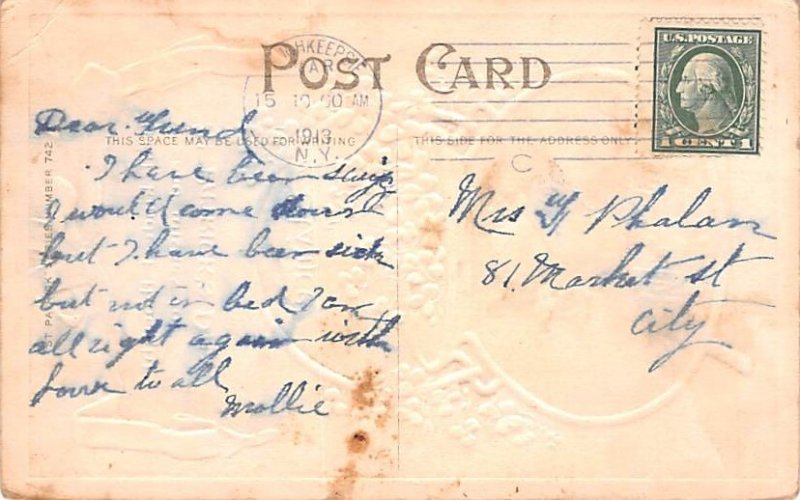 POST CARD
POUGHKEEPSIE
MAR
15 10 00 AM
1913
N.Y.
U.S. POSTAGE
1 CENT 1
THIS SPACE MAY BE USED FOR WRITING
THIS SIDE FOR THE ADDRESS ONLY
C
Dear Friend
I have been saying
I would come down
but I have been sick
but not in bed I am
all right again with
love to all
Mollie
Mrs Phalan
81. Market st
city
NUMBER 742